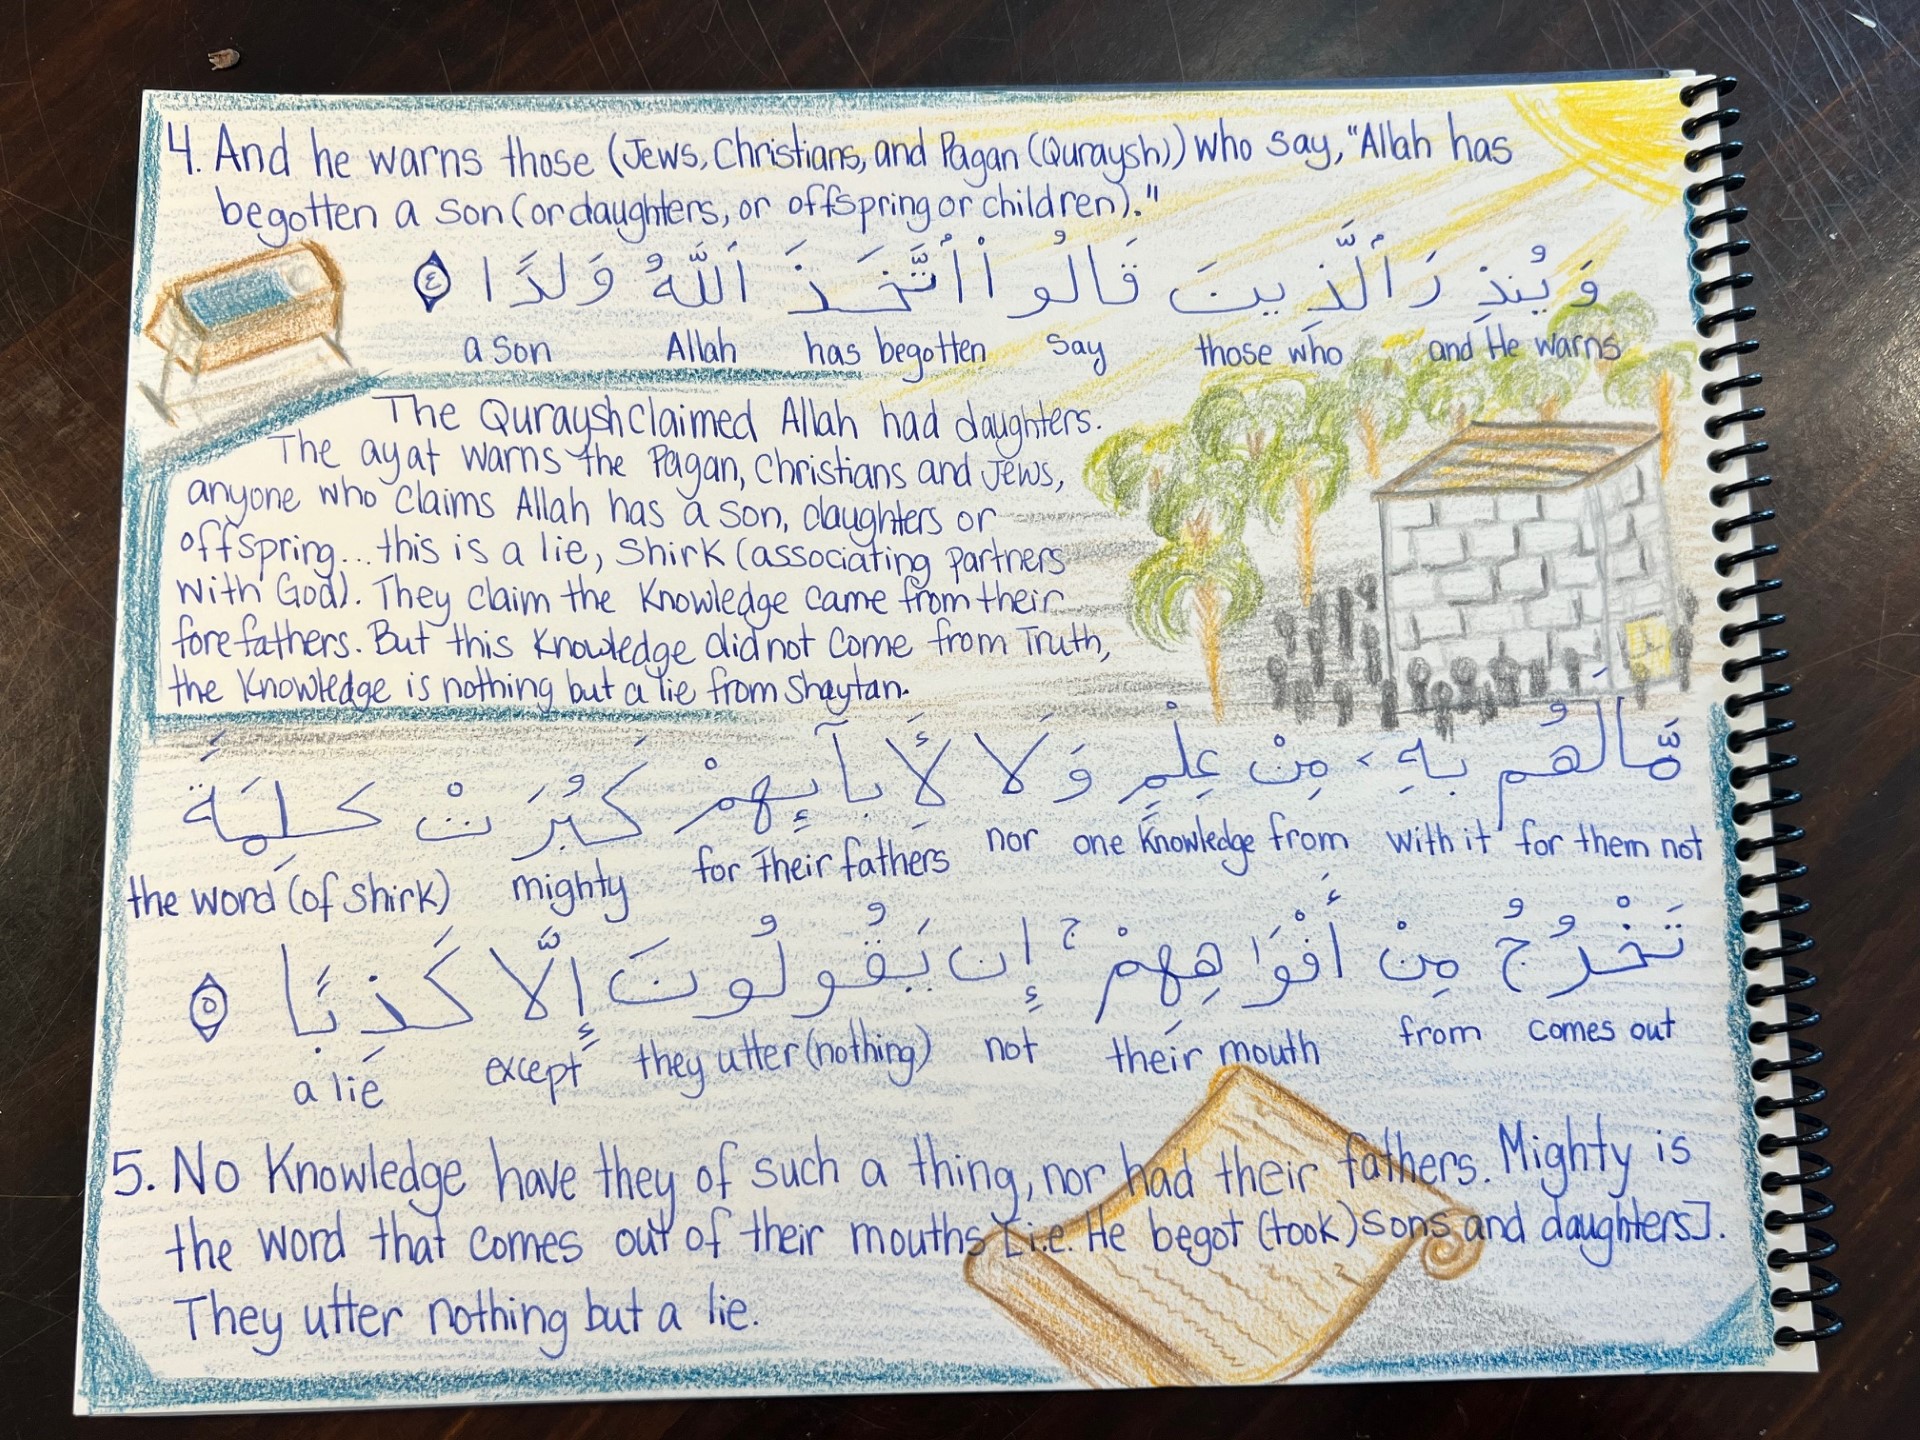 4. And he warns those (Jews, Christians, and Pagan (Quraysh)) who say, "Allah has
begotten a son (or daughters, or offspring or children)."
وَيُنذِرَ ٱلَّذِينَ قَالُواْ ٱتَّخَذَ ٱللَّهُ وَلَدًا ٤
a son Allah has begotten say those who and He warns
The Quraysh claimed Allah had daughters.
The ayat warns the Pagan, Christians and Jews,
anyone who claims Allah has a son, daughters or
offspring... this is a lie, shirk (associating partners
with God). They claim the knowledge came from their
forefathers. But this knowledge did not come from Truth,
the knowledge is nothing but a lie from shaytan.
مَّا لَهُم بِهِۦ مِنْ عِلْمٍ وَلَا لِأَبَآئِهِمْ كَبُرَتْ كَلِمَةً
the word (of shirk) mighty for their fathers nor one knowledge from with it for them not
تَخْرُجُ مِنْ أَفْوَاهِهِمْ ۚ إِن يَقُولُونَ إِلَّا كَذِبًا ٥
a lie except they utter (nothing) not their mouth from comes out
5. No knowledge have they of such a thing, nor had their fathers. Mighty is
the word that comes out of their mouths [i.e. He begot (took) sons and daughters].
They utter nothing but a lie.